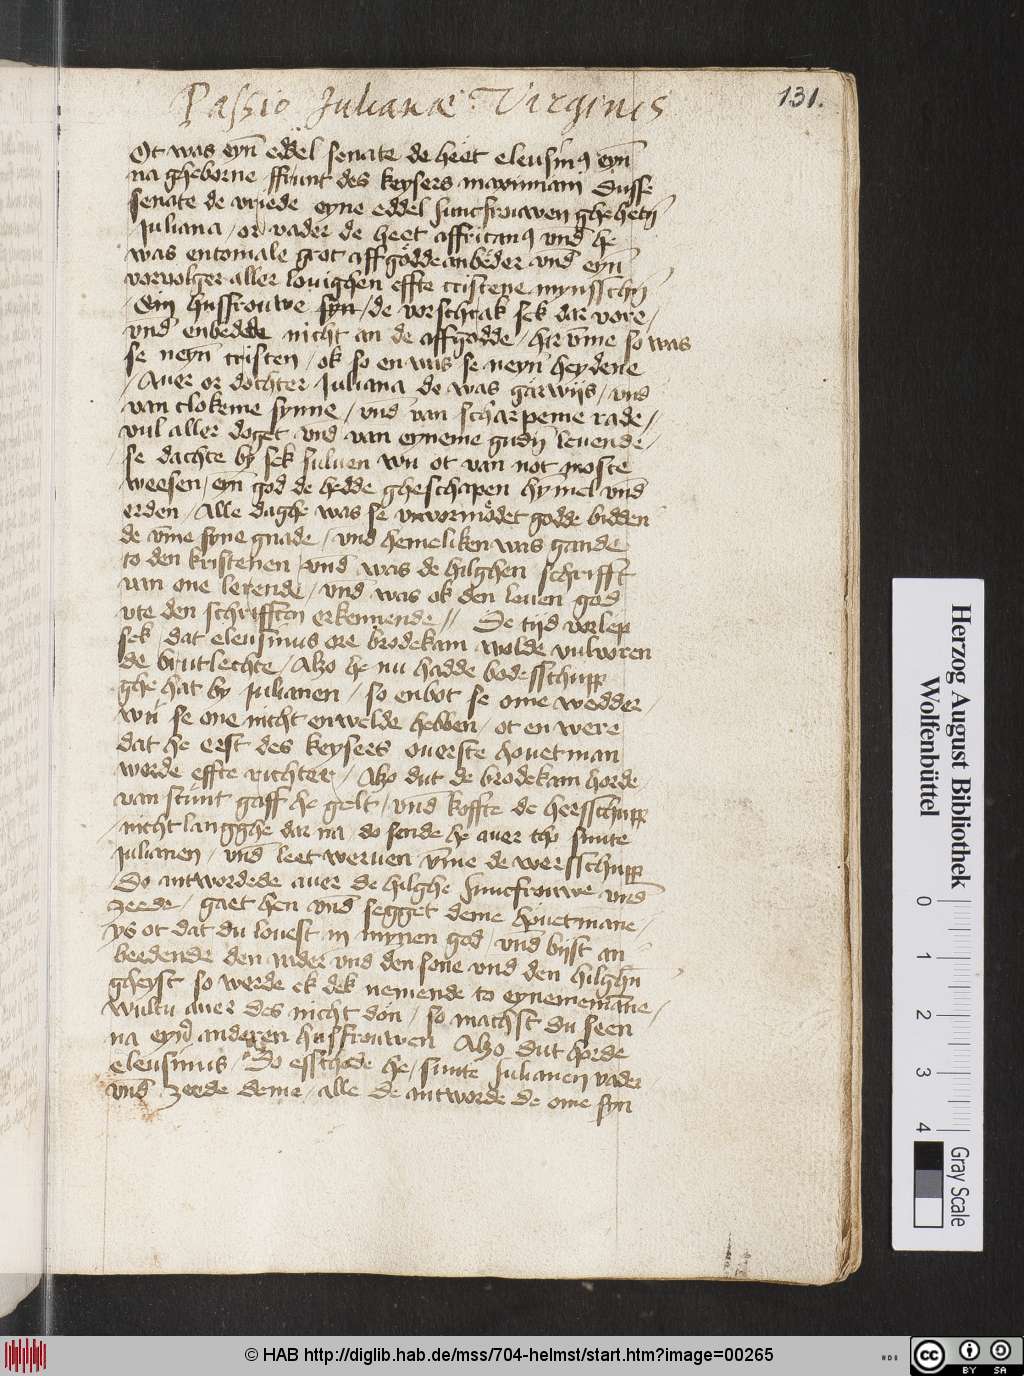 Passio Julianæ Virginis
131.
Ot was eyn eddel senate de heet eleusinꝰ eyn
na gheborne ffrunt des keysers maximiani Dusse
senate de vriede eyne eddel Juncfrouwen ghehetn
Juliana / or vader de heet affricanꝰ vnd he
was entomale grot affgodde anbeder vnd eyn
vorvolger aller louighen effte cristene mynsschn
/ Sin husfrouwe syn / de vorschrak sek dar vore /
vnd enbedde nicht an de affgodde / hir vme so was
se neyn cristen / ok so en was se neyn heydene
/ Auer or dochter Juliana de was garwijs / vnd
van clokeme synne / vnd van scharpeme rade /
vul aller doget vnd van eyneme gudn leuende /
/ se dachte by sek suluen wu ot van not moste
weesen / eyn god de hedde gheschapen hymel vnd
erden / Alle daghe was se vnvormodet godde bidden
de vme syne gnade / vnd hemeliken was gande
to den kristenen / vnd was de hilghen schrifft
van one lerende / vnd was ok den leuen god
vte den schrifften erkennende // De tijd vorlep
sek / dat eleusinus ore brodekam wolde vulvoren
de brutlechte / Alzo he nu hadde bodesschupp
ghe hat by Julianen / so enbot se ome wedder /
wu se one nicht enwelde hebben / ot en were
dat he erst des keysers ouerste houetman
worde effte richter / Alzo dut de brodekam horde
van stunt gaff he gelt / vnd koffte de hersschupp
/ nicht langghe dar na / do sende he auer tho sunte
Julianen / vnd leet weruen vme de wersschupp
/ Do antwordede auer de hilghe Juncfrouwe vnd
zeede / gaet hen vnd segget deme houetmane /
ys ot dat du louest in mynen god / vnd bijst an
beedende den vader vnd den sone vnd den hilghn
gheyst so werde ek dek nemende to eynememane /
wultu auer des nicht don / so machst du seen
na eynd anderen husfrouwen Alzo dut horde
eleusinus / Do esschede he / sunte Julianen vader
vnd zeede deme / alle de antworde de ome syn
Herzog August Bibliothek
Wolfenbüttel
0 1 2 3 4
Gray Scale
© HAB http://diglib.hab.de/mss/704-helmst/start.htm?image=00265
HAB
cc BY SA